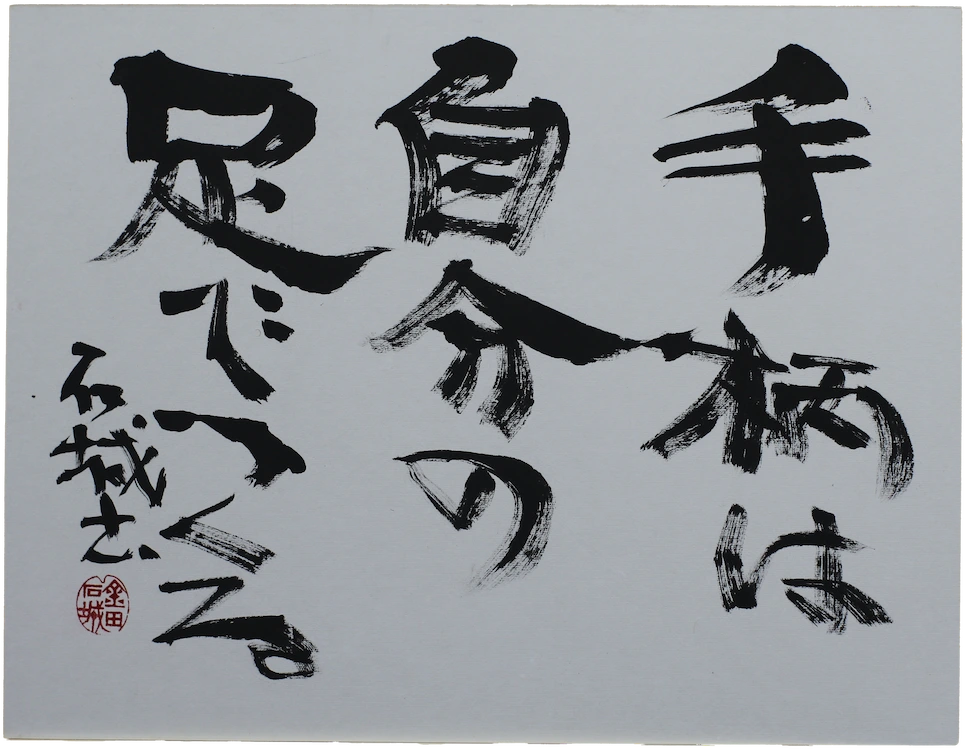 手柄は
自分の
足でつくる。
石城書
金田
石城